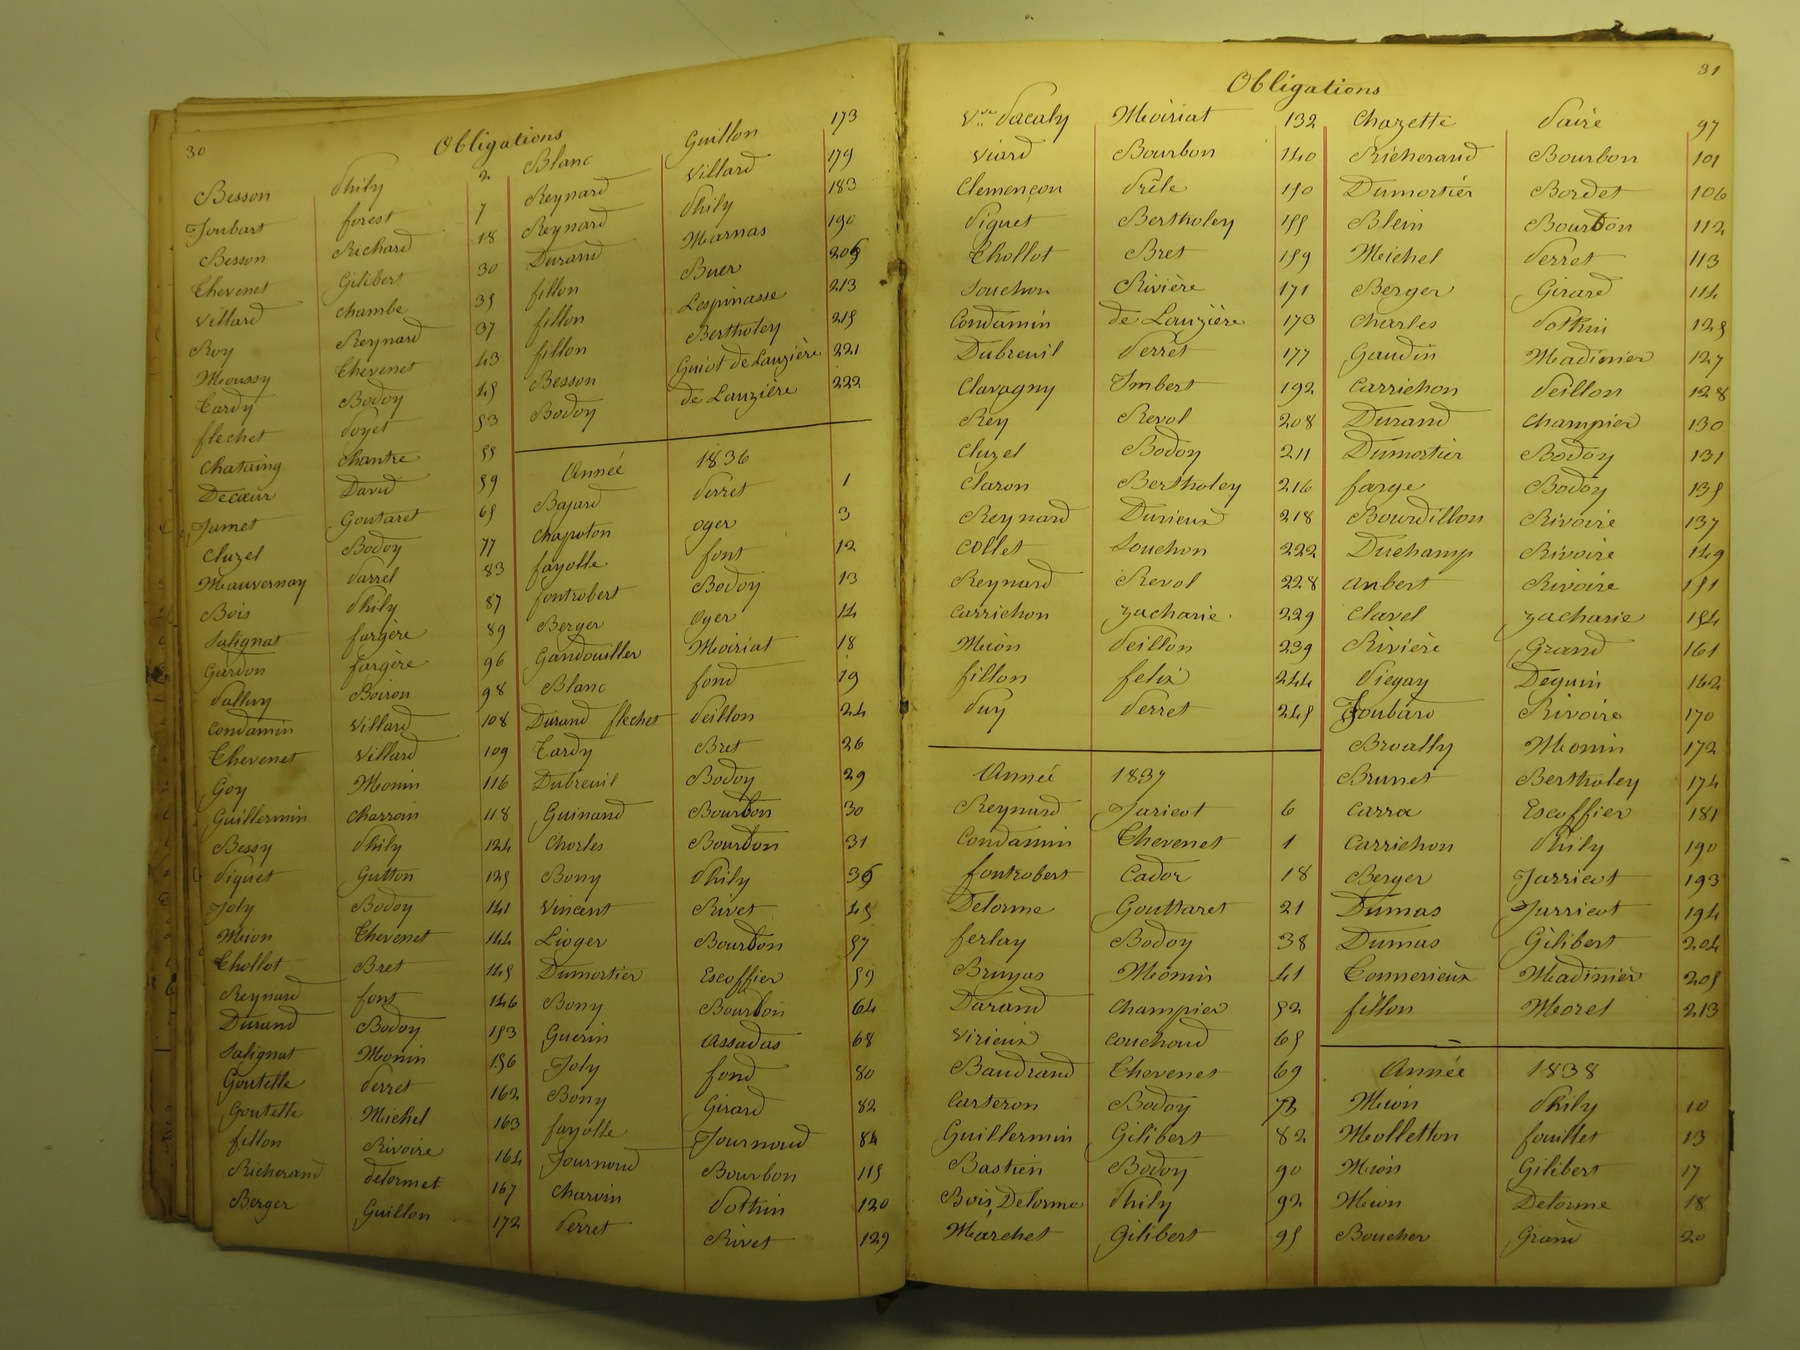 30
Obligations
Besson Phily 2
Joubart forest 7
Besson Richard 18
Chevenet Gilibert 30
Villard Chambe 35
Roy Reynard 37
Moussy Chevenet 43
Tardy Bodoy 45
flechet Poyet 53
Chataing Chantre 55
Decœur David 59
Jamet Goutaret 65
Cluzel Bodoy 77
Mauvernay Parrel 83
Bois Phily 87
Salignat fargère 89
Gardon fargère 96
Palluy Boiron 98
Condamin Villard 108
Chevenet Villard 109
Goy Monin 116
Guillermin Charroin 118
Bessy Phily 124
Piquet Gutton 125
Joly Bodoy 141
Mion Chevenet 144
Chollot Bret 145
Reynard font 146
Durand Bodoy 153
Salignat Monin 156
Goutelle Perret 162
Goutelle Michel 163
fillon Rivoire 164
Richerand delormet 167
Berger Guillon 172
Blanc Guillon 173
Reynard Villard 179
Reynard Phily 183
Durand Marnas 190
fillon Buer 205
fillon Lespinasse 213
fillon Bertholey 215
Besson Guiot de Lauzière 221
Bodoy de Lauzière 222
Année 1836
Bajard Perret 1
Chapoton oger 3
fayolle font 12
fontrobert Bodoy 13
Berger Oger 14
Gandouiller Moiriat 18
Blanc fond 19
Durand flechet Peillon 24
Tardy Bret 26
Dubreuil Bodoy 29
Guinand Bourbon 30
Charles Bourbon 31
Bony Phily 36
Vincent Rivet 45
Lioger Bourbon 57
Dumortier Escoffier 59
Bony Bourbon 64
Guerin Assadas 68
Joly fond 80
Bony Girard 82
fayolle Journoud 84
Journoud Bourbon 115
Charvin Pothin 120
Perret Rivet 129
31
Obligations
Vve Pacaly Moiriat 132
Viard Bourbon 140
Clemençon Prêle 150
Piquet Bertholey 155
Chollot Bret 159
Souchon Rivière 171
Condamin de Lauzière 173
Dubreuil Perret 177
Clavagny Imbert 192
Rey Revol 208
Cluzel Bodoy 211
Claron Bertholey 216
Reynard Durieux 218
Collet Souchon 222
Reynard Revol 228
Carrichon Zacharie 229
Mion Peillon 239
fillon felix 244
Puy Perret 245
Année 1837
Reynard Jaricot 6
Condamin Chevenet 1
fontrobert Cador 18
Delorme Gouttaret 21
ferlay Bodoy 38
Bruyas Monin 41
Durand Champier 52
Virieux Couchoud 65
Baudrand Chevenet 69
Carteron Bodoy 73
Guillermin Gilibert 82
Bastien Bodoy 90
Bois, Delorme Phily 92
Marchet Gilibert 95
Chazette Paire 97
Richerand Bourbon 101
Dumortier Bordet 106
Blein Bourbon 112
Michel Perret 113
Berger Girard 114
Charles Pothin 125
Gaudin Madinier 127
Carrichon Peillon 128
Durand Champier 130
Dumortier Bodoy 131
farge Bodoy 135
Bourdillon Rivoire 137
Duchamp Rivoire 149
Aubert Rivoire 151
Clavel Zacharie 154
Rivière Grand 161
Piegay Deguin 162
Joubard Rivoire 170
Broally Monin 172
Brunet Bertholey 174
Carra Escoffier 181
Carrichon Phily 190
Berger Jarricot 193
Dumas Jarricot 194
Dumas Gilibert 204
Connerieux Madinier 205
fillon Morel 213
Année 1838
Mion Phily 10
Molletton fouillet 13
Mion Gilibert 17
Mion Delorme 18
Boucher Grand 20